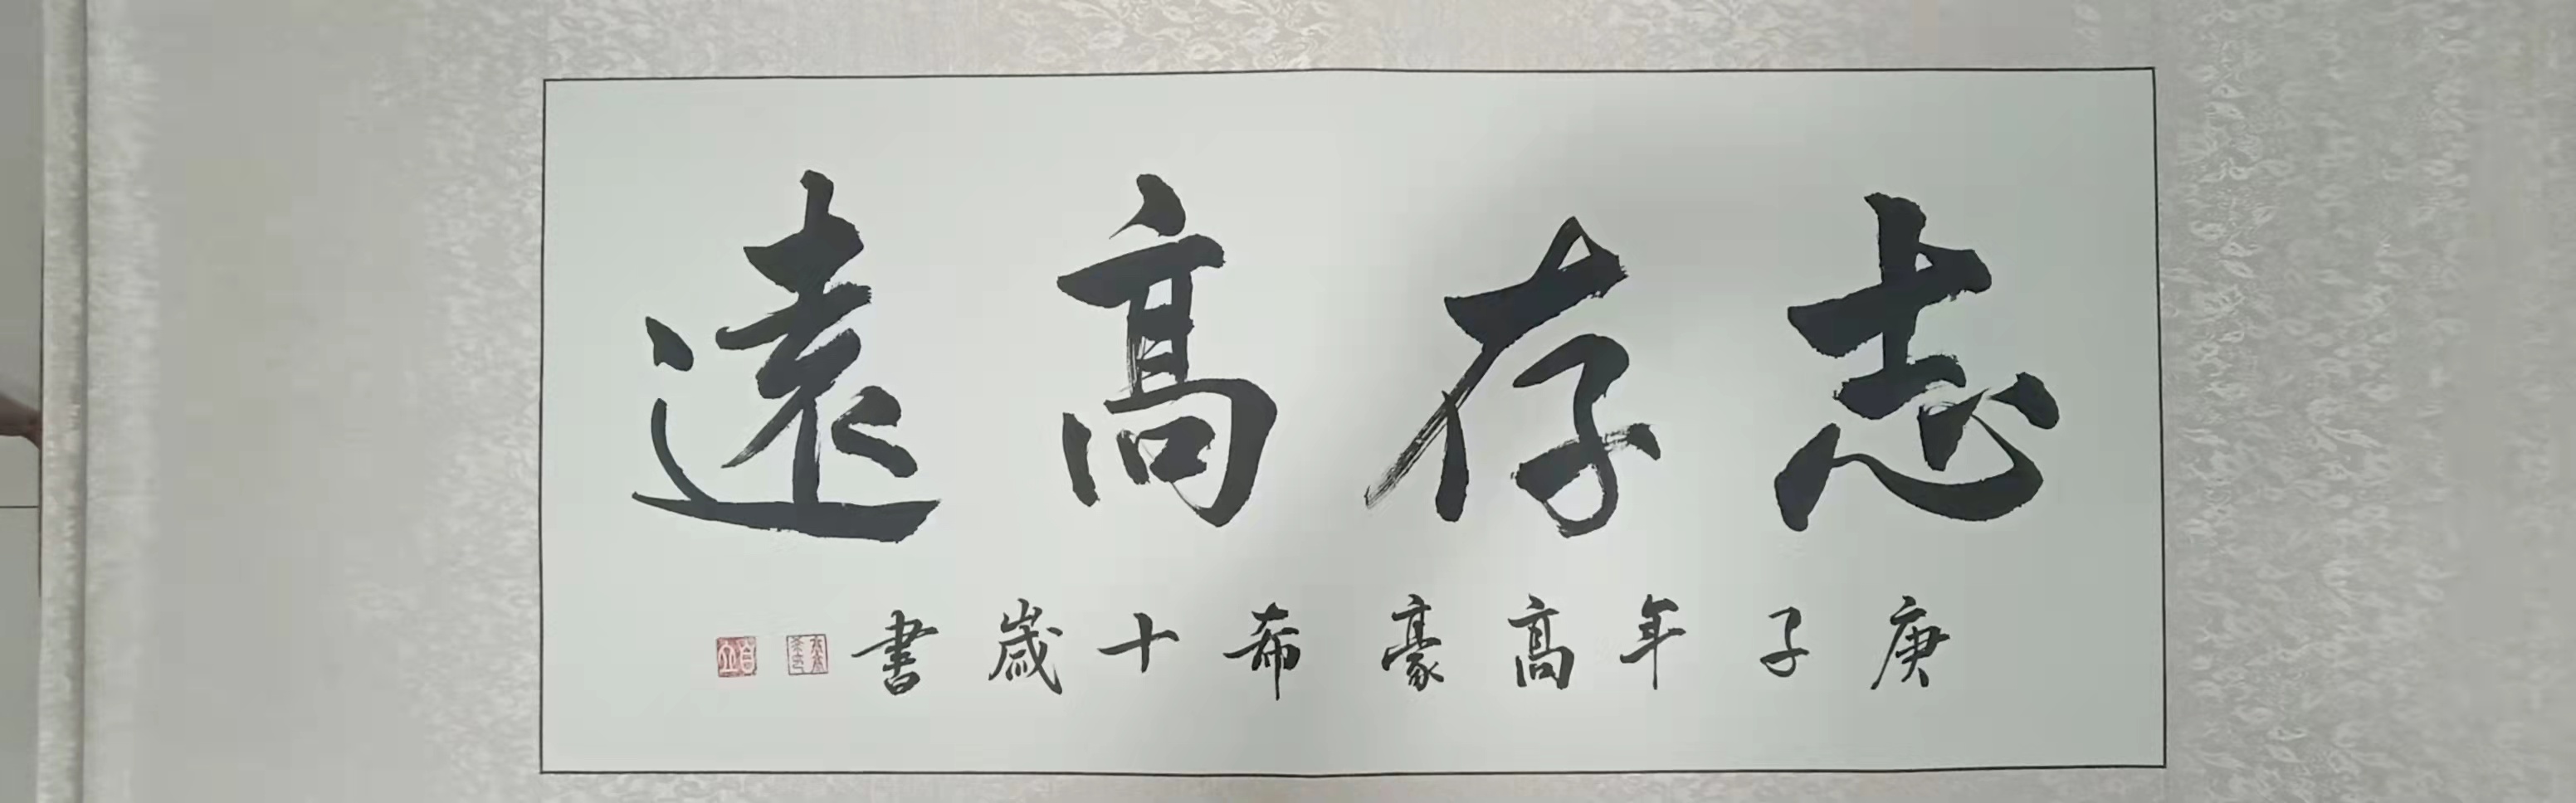 志存高遠
庚子年高豪希十歲書